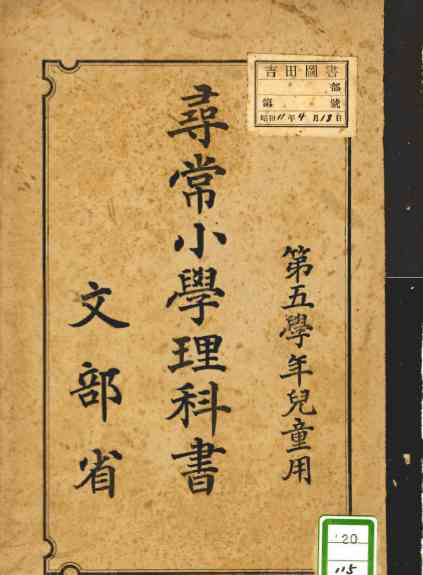 吉田圖書
部
第 號
昭和11年4月18日
第五學年兒童用
尋常小學理科書
文部省
120
115